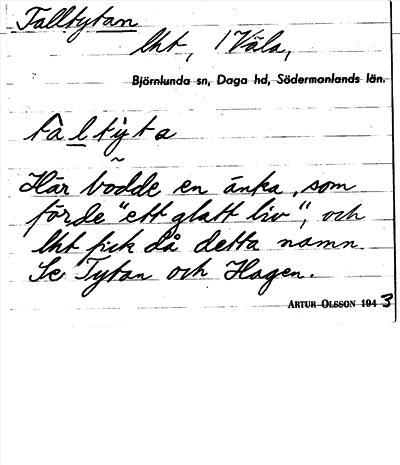 Talltytan
lht, / Väla,
Björnlunda sn, Daga hd, Södermanlands län.
tàltýta
Här bodde en änka, som
förde "ett glatt liv", och
lht fick då detta namn.
Se Tytan och Hagen.
ARTUR OLSSON 1943